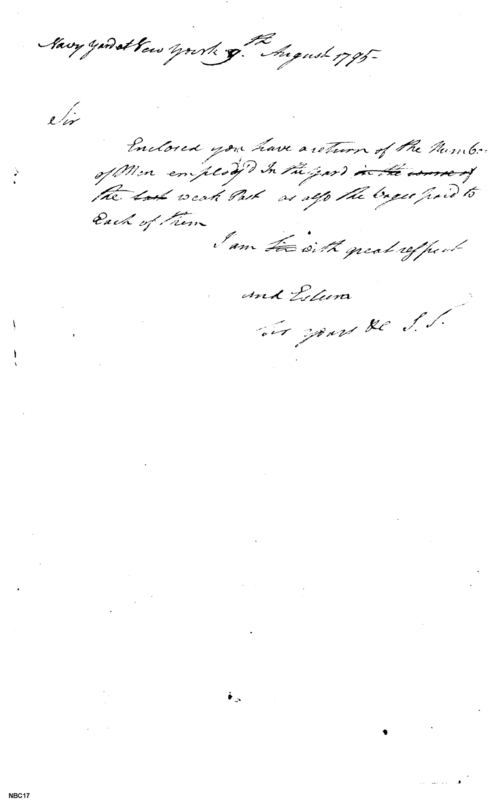 Navy yard at New York 9th August 1795-
Sir
Enclosed you have a return of the Numbr
of Men employ'd In the yard in the course of
the last weak Past as also the Wages paid to
Each of them
I am Sir with great respect
and Esteem
Sir yours &c J. T.
NBC17